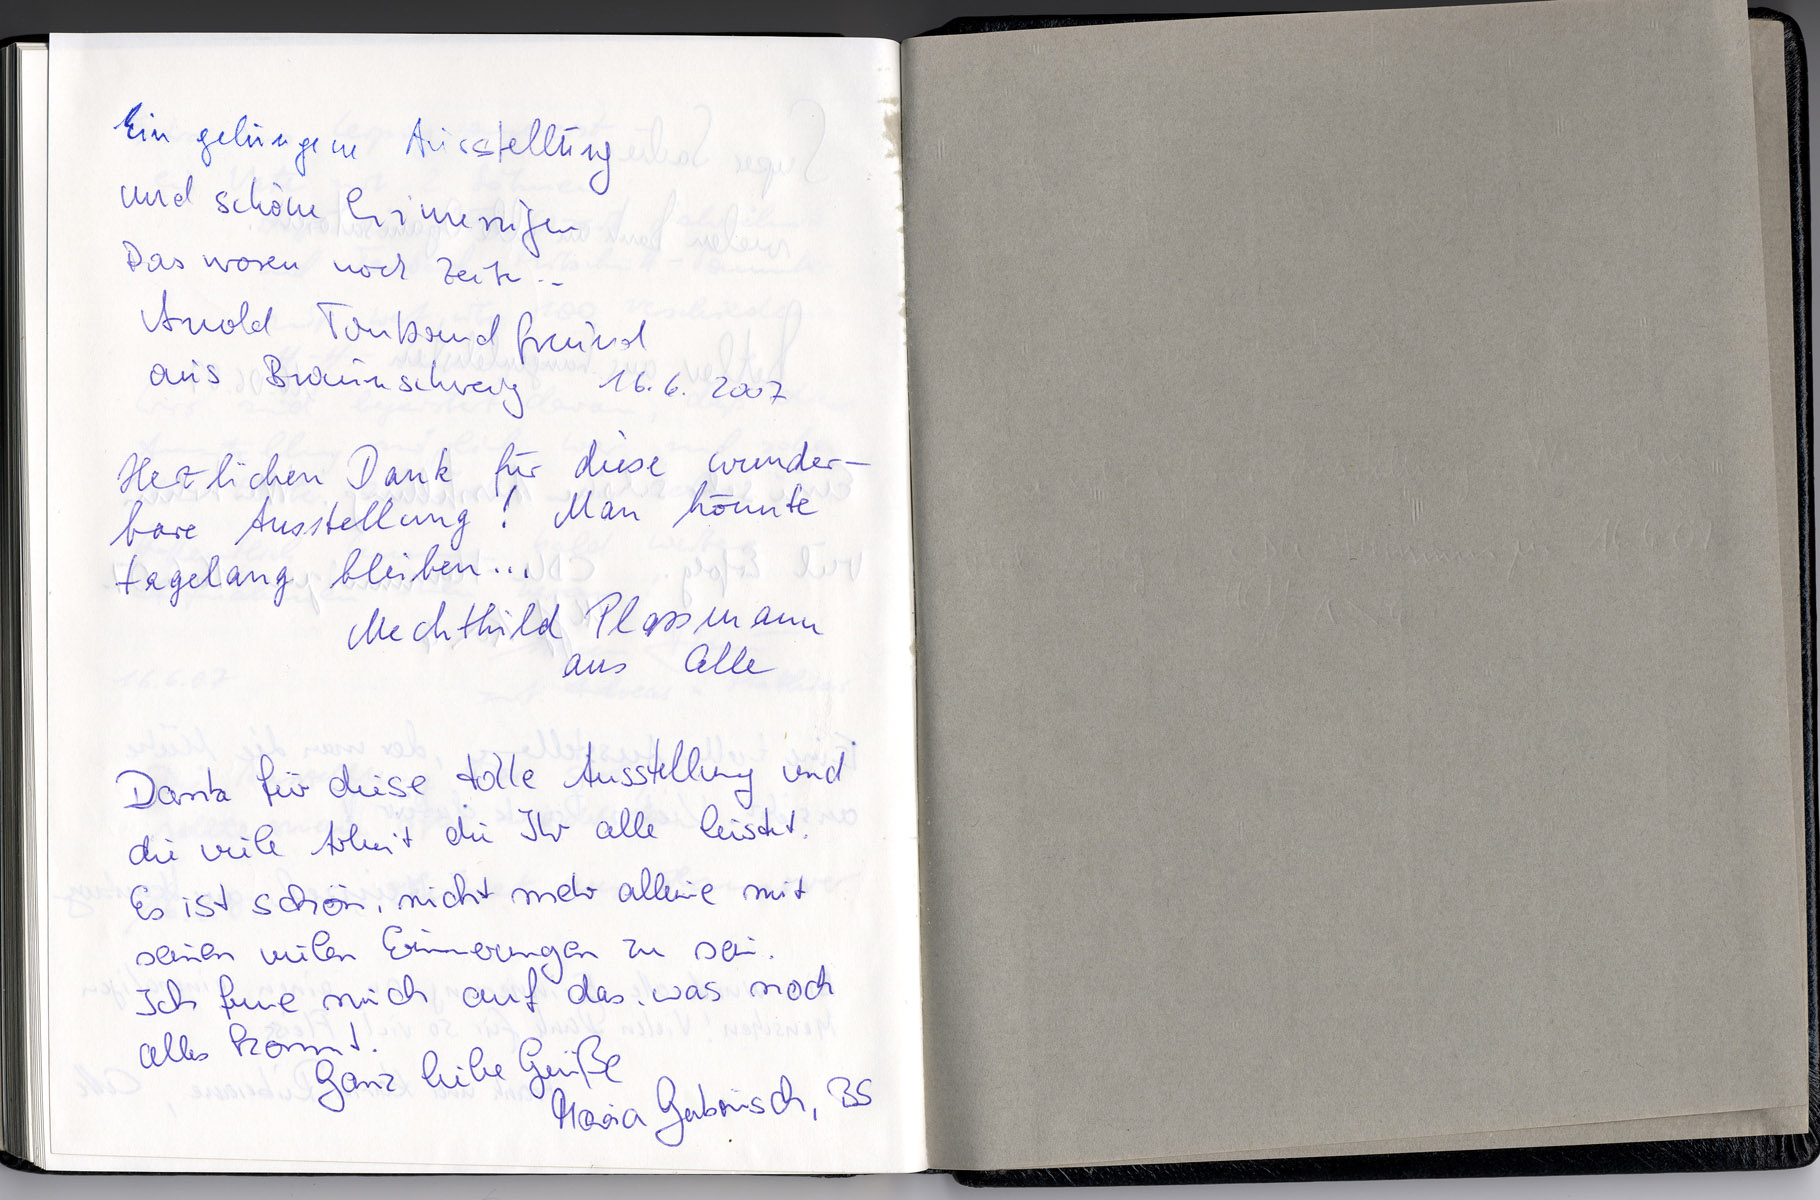 Ein gelungene Ausstellung
und schöne Erinnerungen
Das waren noch Zeiten...
Arnold Tonbandfreund
aus Braunschweig 16.6.2007
Herzlichen Dank für diese wunder-
bare Ausstellung! Man könnte
tagelang bleiben...
Mechthild Plassmann
aus Celle
Dank für diese tolle Ausstellung und
die viele Arbeit die Ihr alle leistet.
Es ist schön, nicht mehr alleine mit
seinen vielen Erinnerungen zu sein.
Ich freue mich auf das, was noch
alles kommt.
Ganz liebe Grüße
Maria, BS